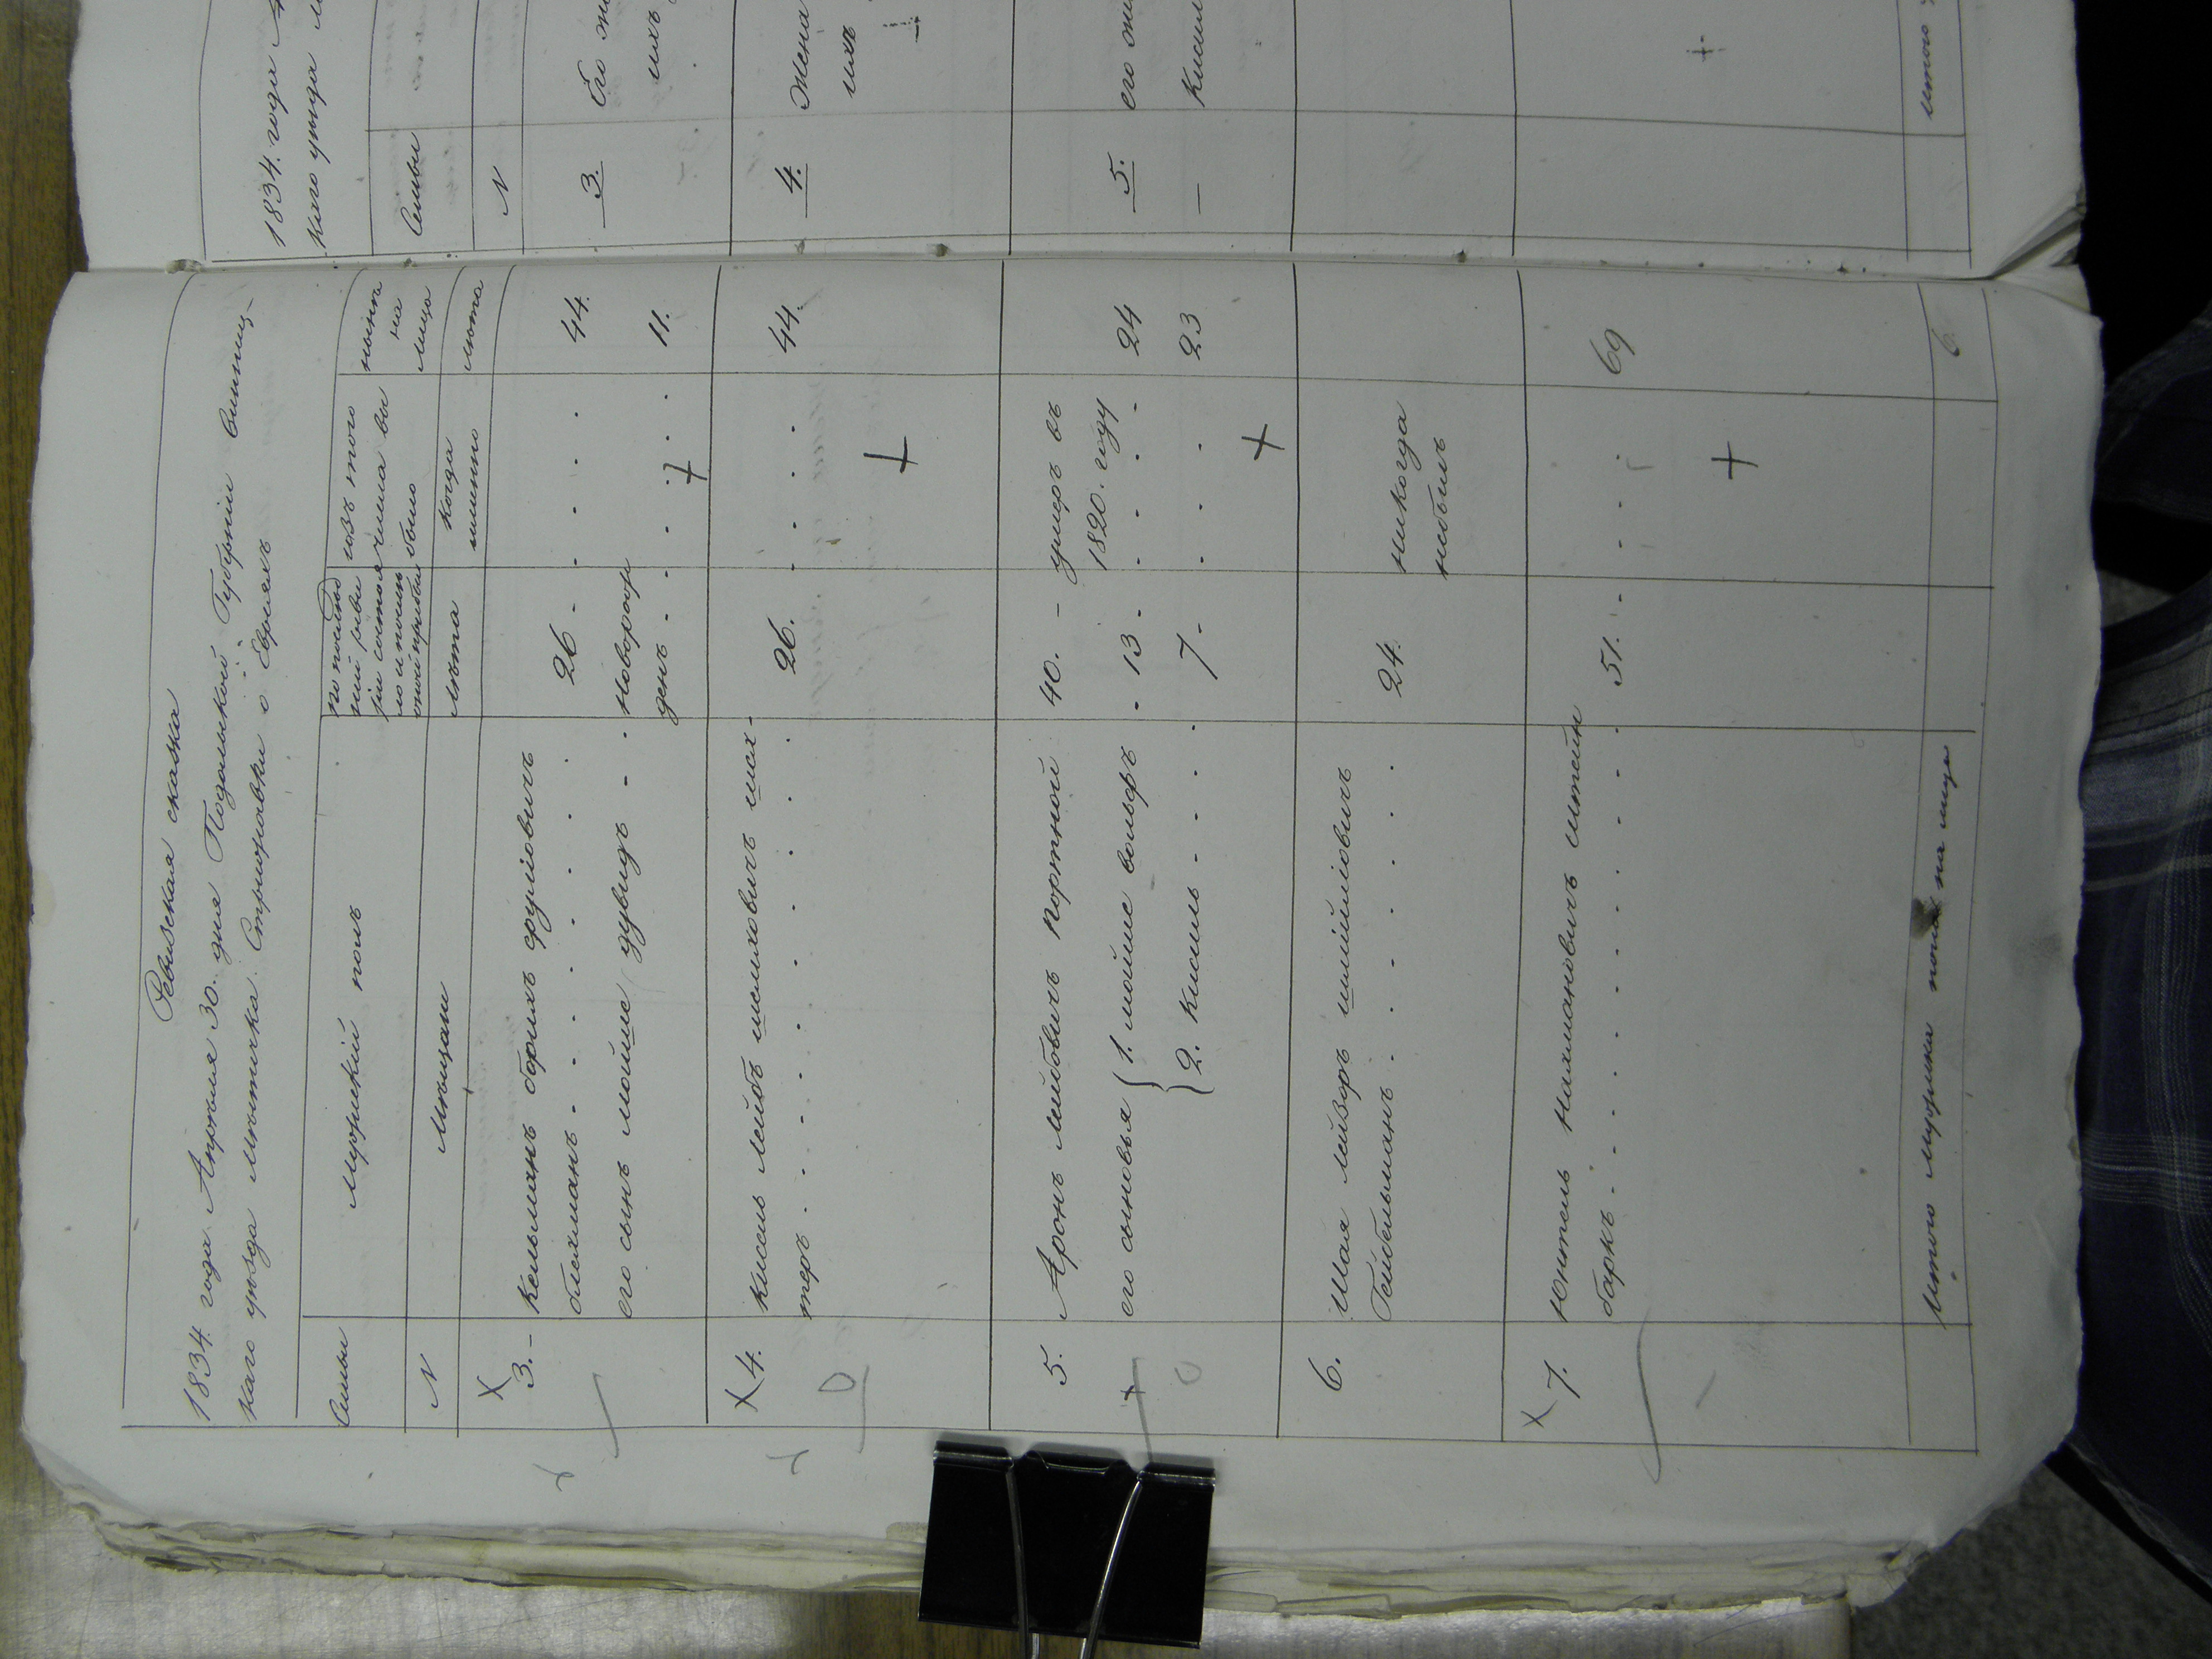 Ревизская сказка
1834. года Апрѣля 30. дня Подольской Губерніи Винниц-
каго уѣзда мѣстечка Стрыжовки о Евреяхъ
Семьи
мужескій полъ
по послѣд
ней реви
зіи состоя
ло и послѣ
оной прибыло
изъ того
числа вы
было
нынѣ
на
лицо
N
мѣщани
лѣта
когда
имянно
лѣта
X
3. - Кельманъ берихъ сруліовичъ
блехманъ - . . . . . . . 26 - . . . . 44.
его сынъ мойше дувидъ - - . Новорож
денъ - . . . . 11.
X 4. Киссель лейбъ шлиховичъ шех-
теръ . . . . . . . . . 26. . . . . 44.
5. Аронъ лейбовичъ портной 40. - умеръ въ
1820. году
его сыновья { 1. мойше вольфъ . 13 - . . . - 24
{ 2. Кисель - . . . . 7 - . . . 23
6. Шая лейзоръ шлиіміовичъ
Гейбельманъ . . . . . . . 24. никогда
небылъ
X 7. Юнтель Нахмановичъ штейн
баркъ . . . . . . . . . 51. - - . . . 69
Итого мужска пола на лице 6.
1834. года
каго уѣзда
Семьи
N
3. Его же
ихъ
4. Жена
ихъ
5. его же
— Кисил
итого